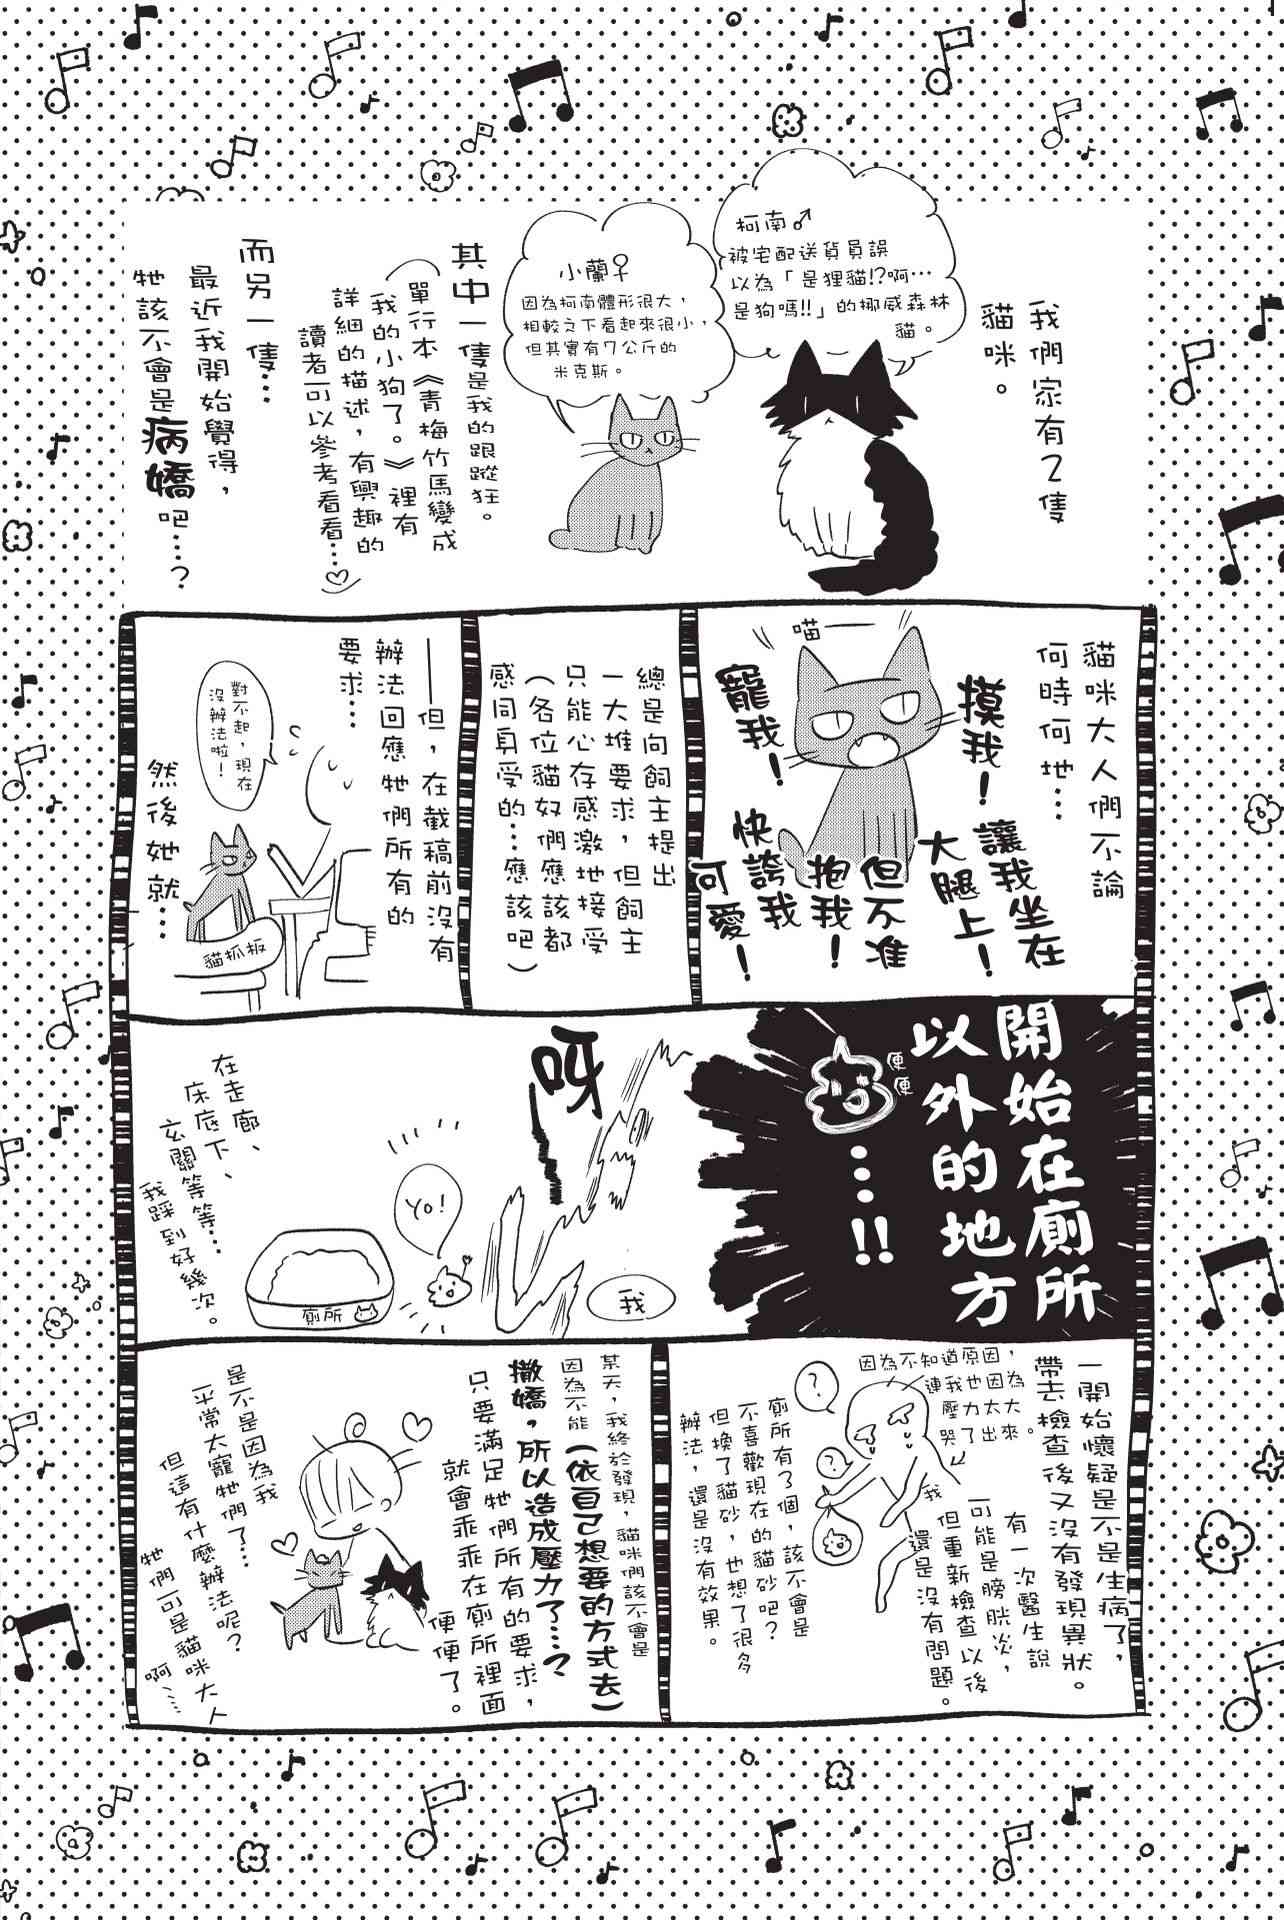 我們家有2隻
貓咪。
柯南♂
被宅配送貨員誤
以為「是狸貓!?啊…
是狗嗎!!」的挪威森林
貓。
小蘭♀
因為柯南體形很大，
相較之下看起來很小，
但其實有7公斤的
米克斯。
其中一隻是我的跟蹤狂。
單行本《青梅竹馬變成
我的小狗了。》裡有
詳細的描述，有興趣的
讀者可以參考看看…♡
而另一隻…
最近我開始覺得，
牠該不會是病嬌吧……？
貓咪大人們不論
何時何地…
喵——
摸我！
讓我坐在
大腿上！
但不准
抱我！
寵我！
快誇我
可愛！
總是向飼主提出
一大堆要求，但飼主
只能心存感激地接受
（各位貓奴們應該都
感同身受的…應該吧）
——但，在截稿前沒有
辦法回應牠們所有的
要求…
對不起，現在
沒辦法啦！
貓抓板
然後她就…
開始在廁所
以外的地方
便便
……!!
呀——
我
Yo!
廁所
在走廊、
床底下、
玄關等等…
我踩到好幾次。
一開始懷疑是不是生病了，
帶去檢查後又沒有發現異狀。
有一次醫生說
可能是膀胱炎，
但重新檢查以後
還是沒有問題。
因為不知道原因，
連我也因為
壓力太大
哭了出來。
我
?
?
廁所有了個，該不會是
不喜歡現在的貓砂吧？
但換了貓砂，也想了很多
辦法，還是沒有效果。
某天，我終於發現，貓咪們該不會是
因為不能（依自己想要的方式去）
撒嬌，所以造成壓力了……？
只要滿足牠們所有的要求，
就會乖乖在廁所裡面
便便了。
是不是因為我
平常太寵牠們了…
但這有什麼辦法呢？
牠們可是貓咪大人
啊、…